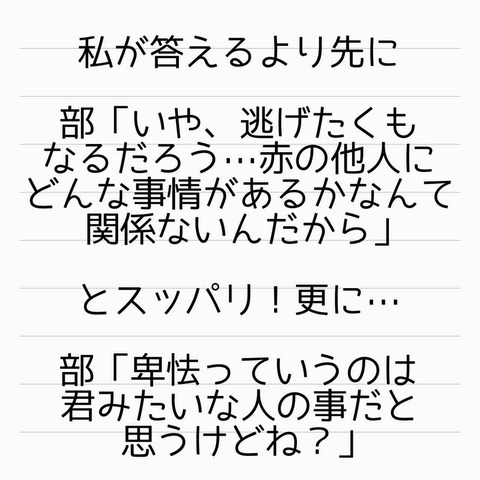 私が答えるより先に
部「いや、逃げたくも
なるだろう…赤の他人に
どんな事情があるかなんて
関係ないんだから」
とスッパリ！更に…
部「卑怯っていうのは
君みたいな人の事だと
思うけどね？」